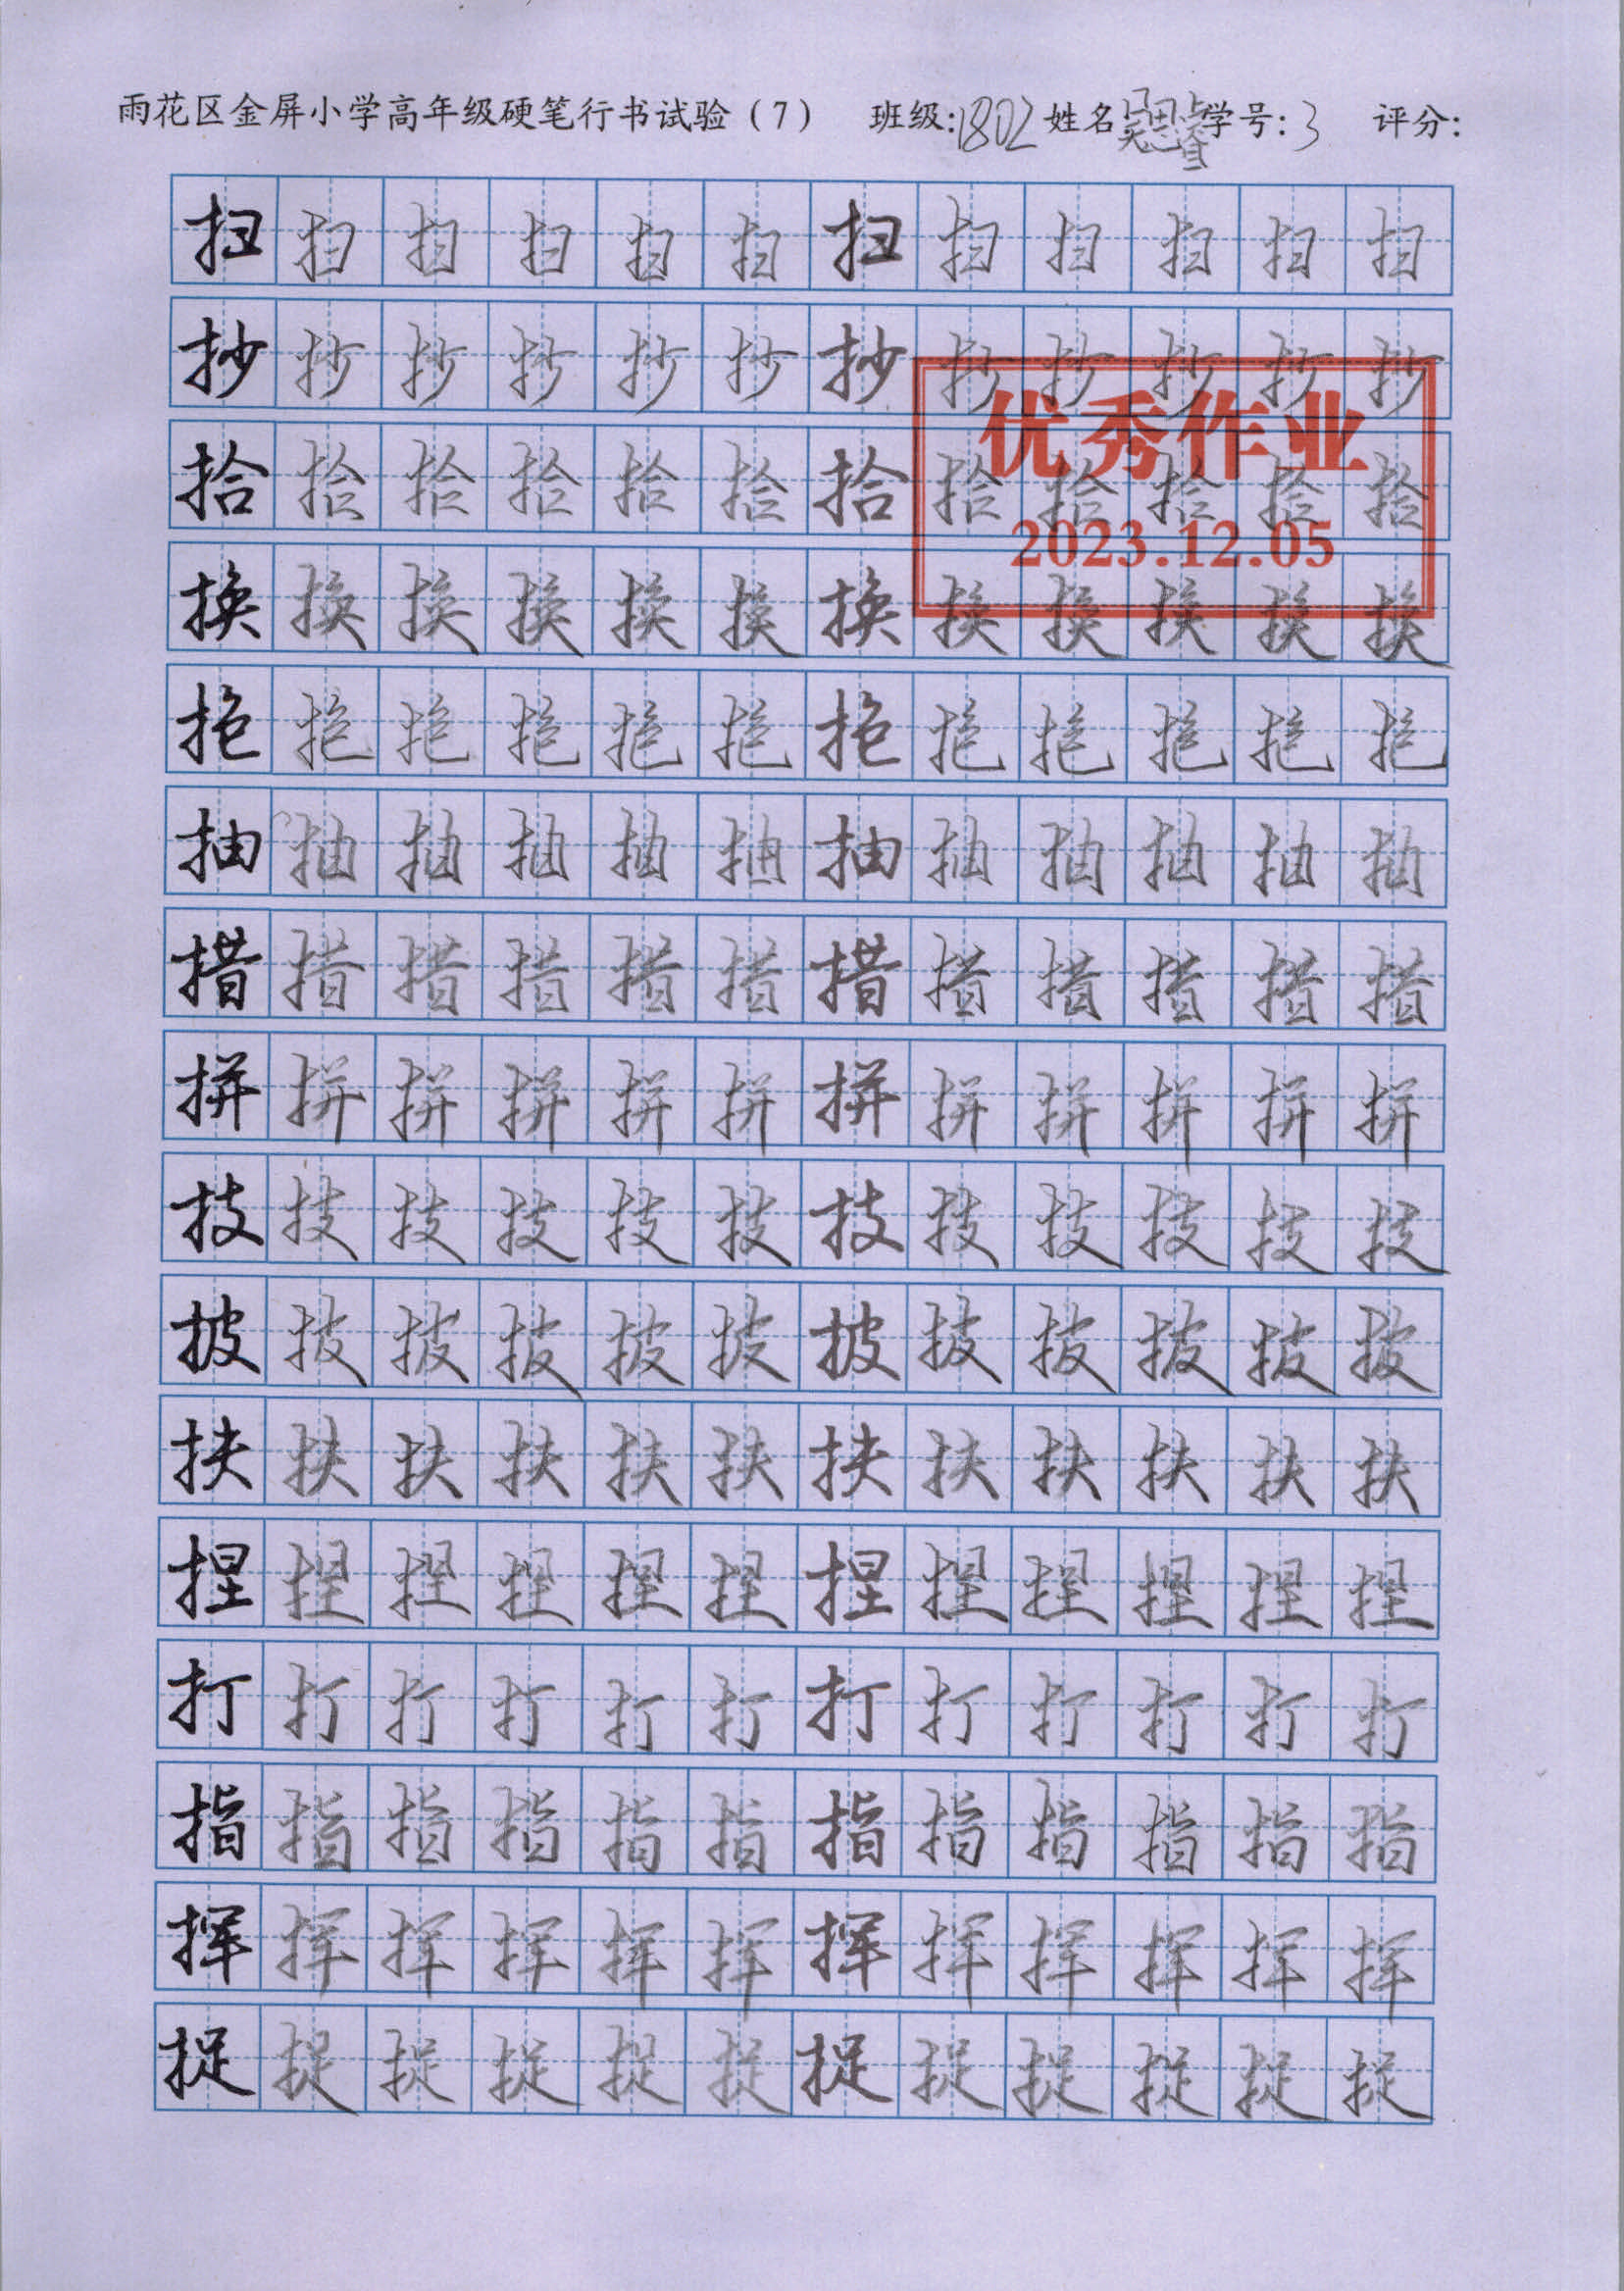 雨花区金屏小学高年级硬笔行书试验（7） 班级:1802 姓名吴思睿学号:3 评分:
扫扫扫扫扫扫扫扫扫扫扫扫
抄抄抄抄抄抄抄抄抄抄抄抄
优秀作业
拾拾拾拾拾拾拾拾拾拾拾拾
2023.12.05
换换换换换换换换换换换换
抱抱抱抱抱抱抱抱抱抱抱抱
抽抽抽抽抽抽抽抽抽抽抽抽
措措措措措措措措措措措措
拼拼拼拼拼拼拼拼拼拼拼拼
技技技技技技技技技技技技
披披披披披披披披披披披披
扶扶扶扶扶扶扶扶扶扶扶扶
捏捏捏捏捏捏捏捏捏捏捏捏
打打打打打打打打打打打打
指指指指指指指指指指指指
挥挥挥挥挥挥挥挥挥挥挥挥
捉捉捉捉捉捉捉捉捉捉捉捉